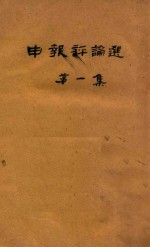 申報評論選
第一集